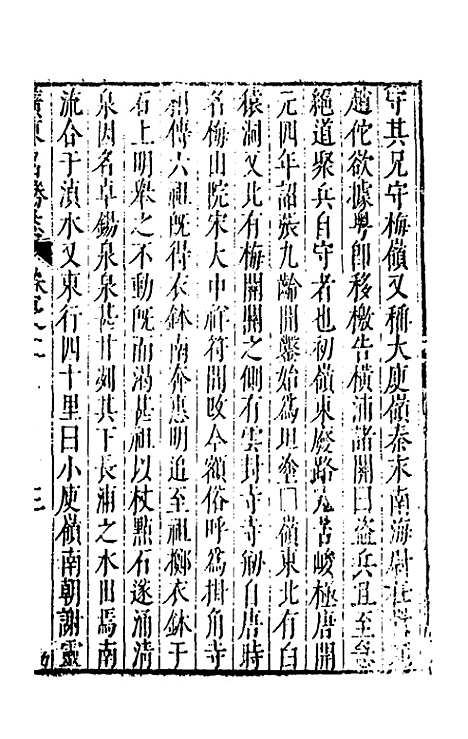 守其兄守梅嶺又稱大庾嶺秦末南海尉
趙佗欲據粵即移檄告橫浦諸關曰盜兵且至急
絕道聚兵自守者也初嶺東廢路尤苦峻極唐開
元四年詔張九齡開鑿始為坦塗嶺東北有白
猿洞又北有梅關關之側有雲封寺寺剏自唐時
名梅山院宋大中祥符間改今額俗呼為掛角寺
相傳六祖既得衣鉢南奔惠明追至祖擲衣鉢于
石上明舉之不動既而渴甚祖以杖點石遂涌清
泉因名卓錫泉泉甚甘冽其下長浦之水田焉南
流合于湞水又東行四十里曰小庾嶺南朝謝靈
廣東名勝志 卷